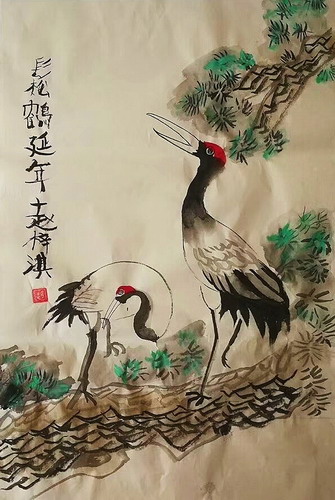 长松鶴延年赵梓淇